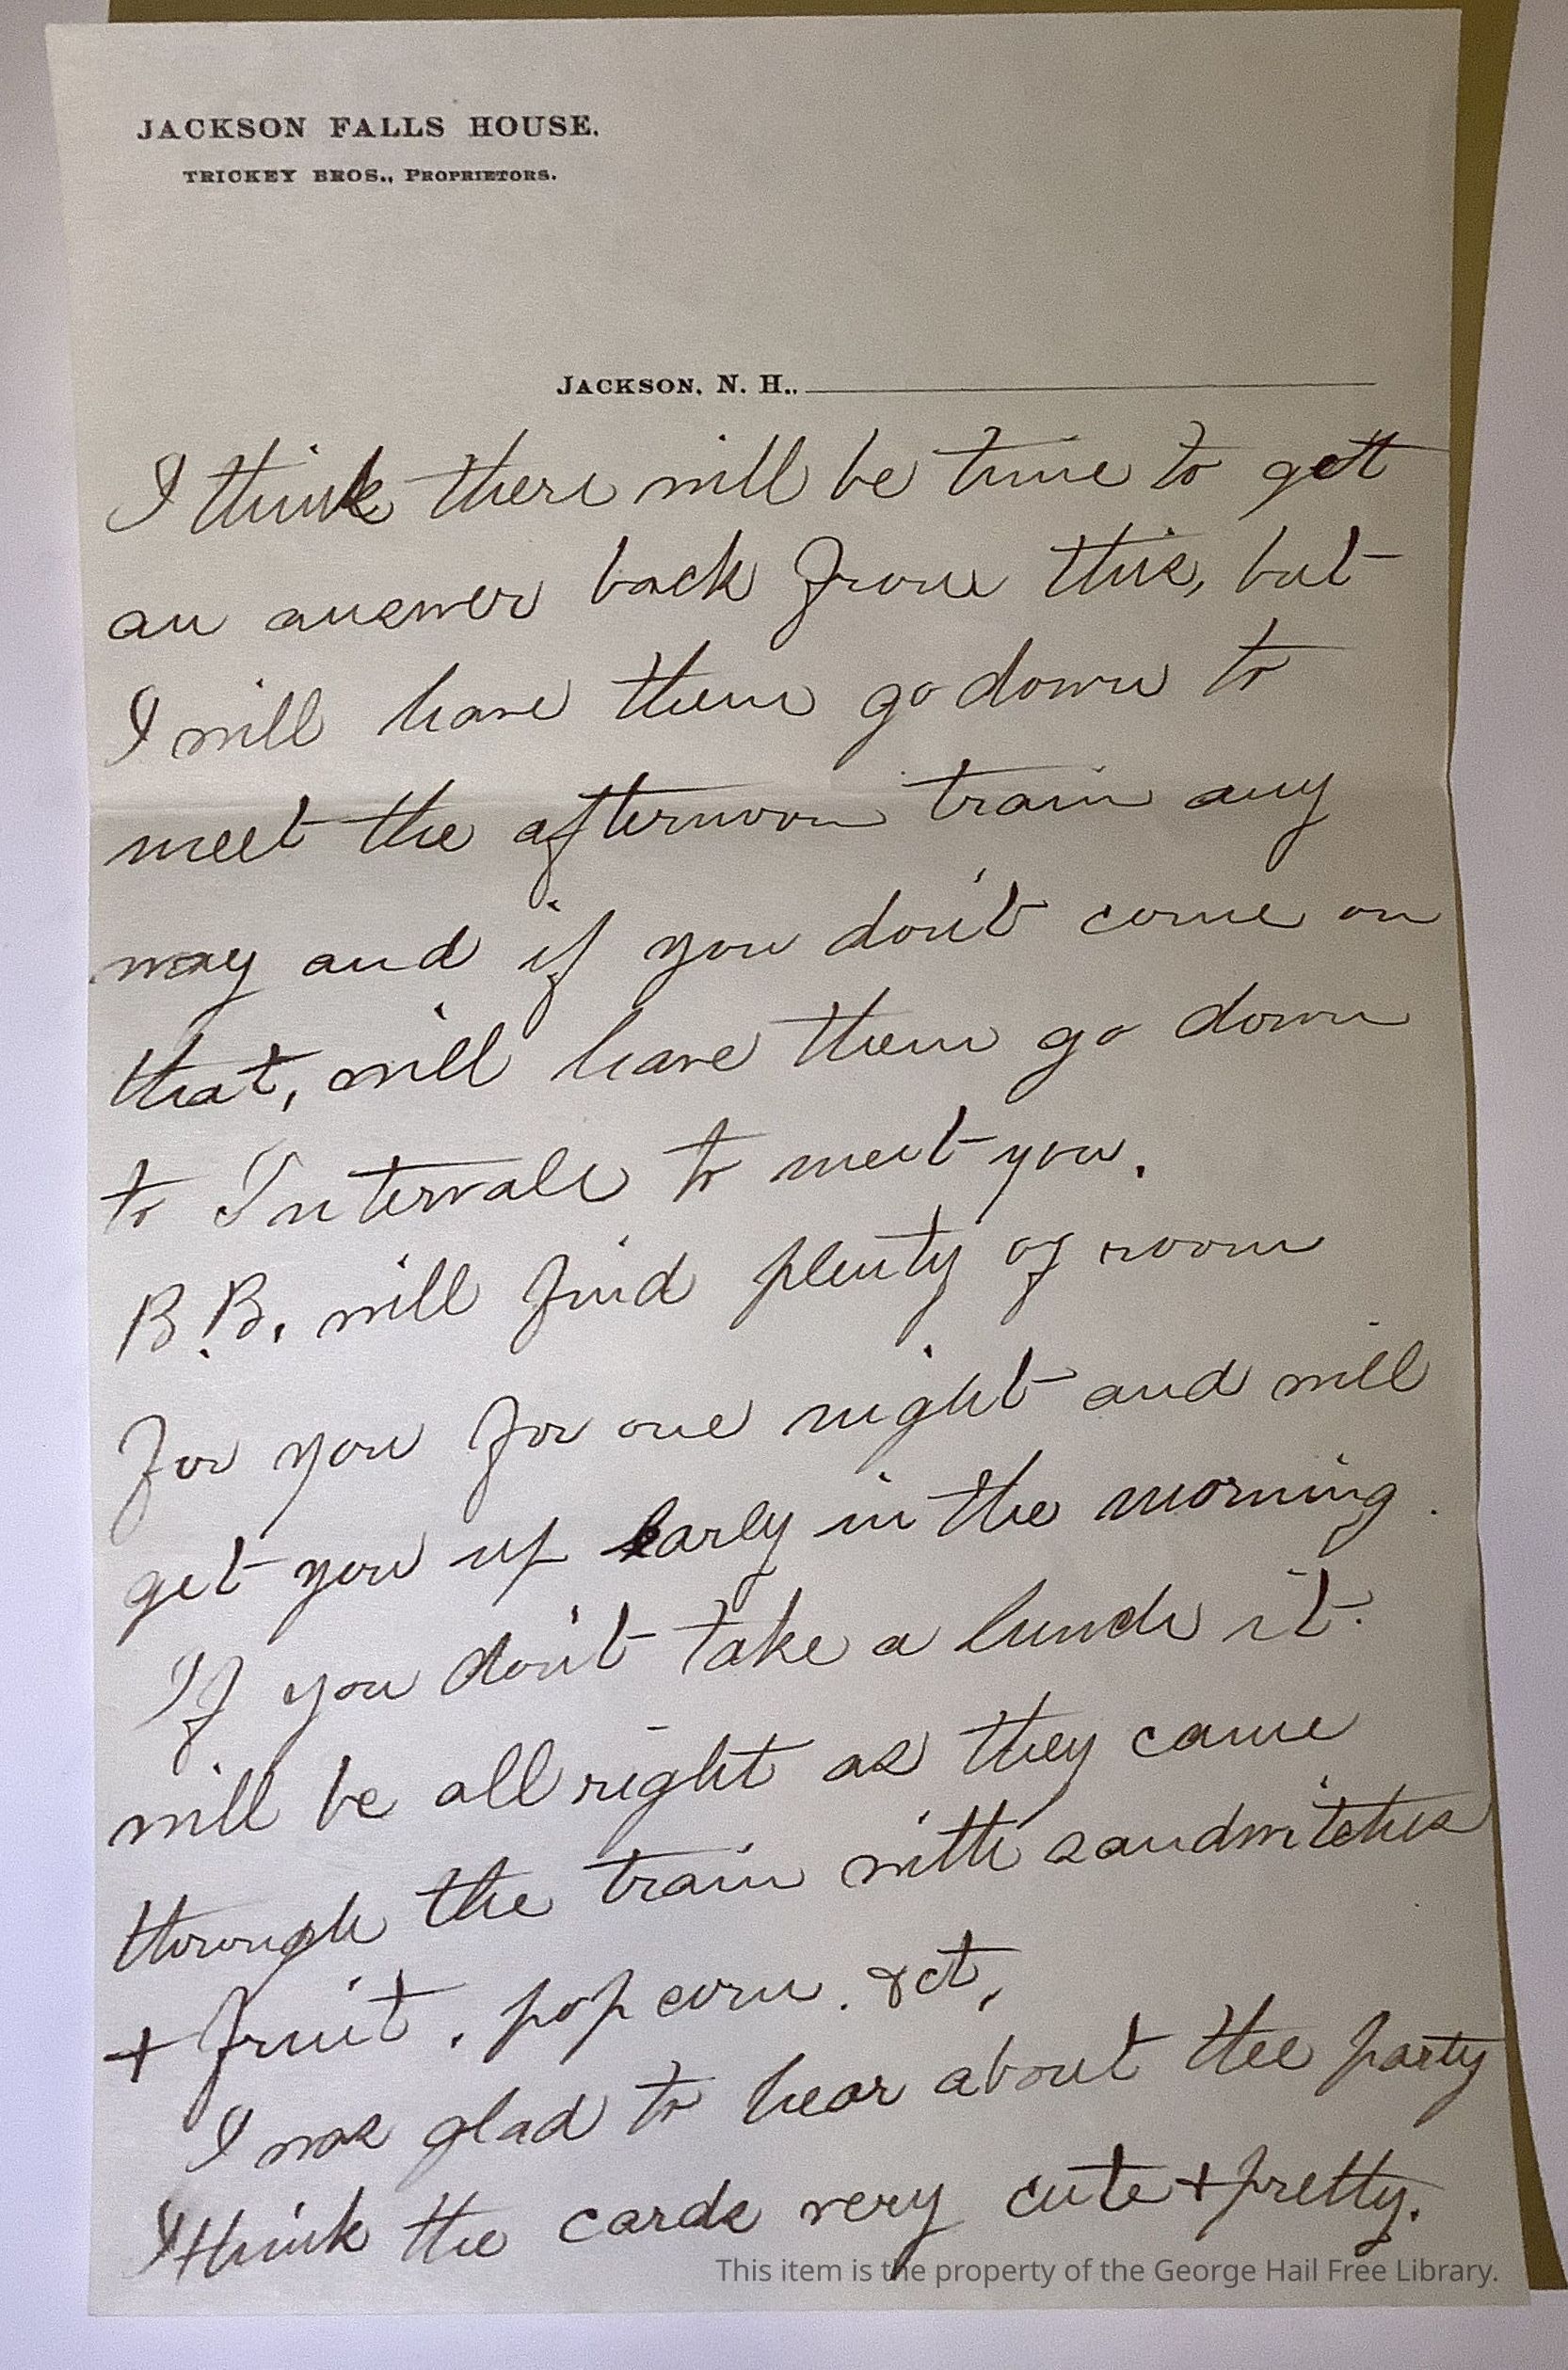 JACKSON FALLS HOUSE.
TRICKEY BROS., PROPRIETORS.
JACKSON, N. H.,
I think there will be time to get
an answer back from this, but
I will have them go down to
meet the afternoon train any
way and if you don't come on
that, will have them go down
to Intervale to meet you.
B.B. will find plenty of room
for you for one night and will
get you up early in the morning.
If you don't take a lunch it
will be all right as they came
through the train with sandwitches
+ fruit, pop corn. &ct,
I was glad to hear about the party
I think the cards very cute + pretty.
This item is the property of the George Hail Free Library.